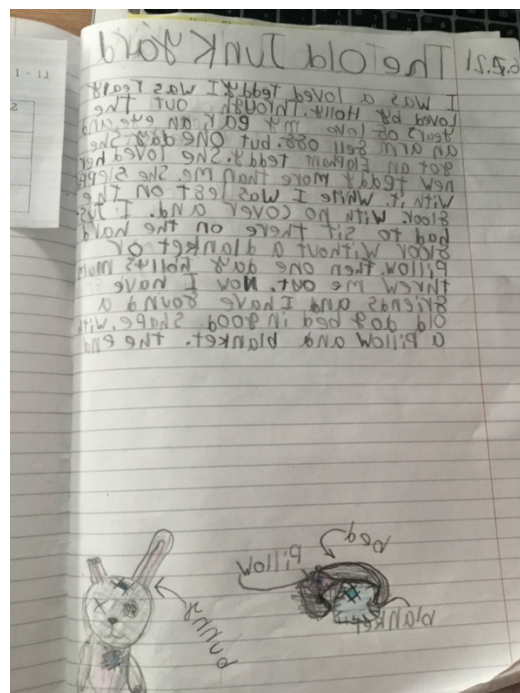 6.2.21
The Old Junk yard
I was a loved teddy. I was realy
loved by Holly. Through out the
years of love my ear, an eye and
an arm fell off. but one day she
got an Elephant teddy. She loved her
new teddy more than me. She slepp
with it. While I was left on the
floor with no cover and. I jus
had to sit there on the hard
floor without a blanket or
pillow. then one day holly's mum
threw me out. Now I have
friends and I have found a
old dog bed in good shape. with
a pillow and blanket. the end
bed
pillow
blanket
bunny